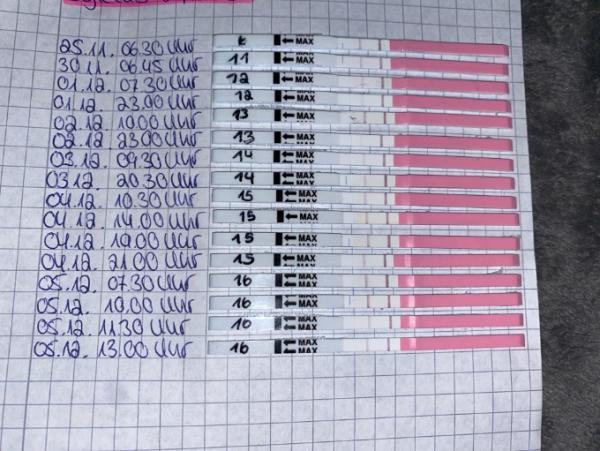 25.11. 06.30 Uhr ← MAX
30.11. 06.45 Uhr 11 ← MAX
01.12. 07.30 Uhr 12 ← MAX
01.12. 23.00 Uhr 12 ← MAX
02.12 10.00 Uhr 13 ← MAX
02.12. 23.00 Uhr 13 ← MAX
03.12. 09.30 Uhr 14 ← MAX
03.12. 20.30 Uhr 14 ← MAX
04.12. 10.30 Uhr 15 ← MAX
04.12. 14.00 Uhr 15 ← MAX
04.12. 19.00 Uhr 15 ← MAX
04.12. 21.00 Uhr 15 ← MAX
05.12. 07.30 Uhr 16 ← MAX
05.12. 10.00 Uhr 16 ← MAX
05.12. 11.30 Uhr 16 ← MAX
05.12. 13.00 Uhr 16 ← MAX